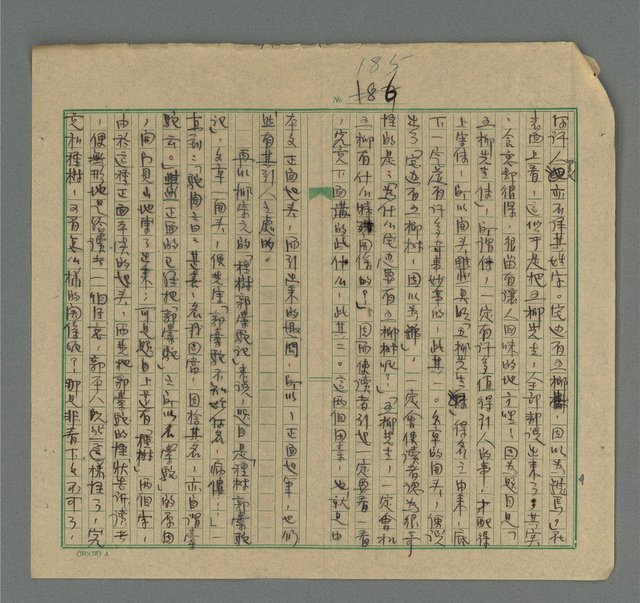 185
186
№
何許人也亦不詳其姓字。宅边有五柳樹,因以為號焉」,在
表面上看,這似乎是把五柳先生,全部都說出來了,其實
,含蓄却很深,很留有讓人回味的地方哩!因为題目是「
五柳先生傳」,所謂傳,一定有許多值得引人的事,才配得
上傳,所以開头雖是以「五柳先生」得名之由來,底
下一定是有許多奇事妙事的,此其一。文章的開头,僅說
出了「宅边有五柳樹,因以為號」,一定會使讀者認为很奇
怪的是:「为什么宅边要有五柳樹呢?」「五柳先生,一定會和
五柳有什么特殊関係的?」因而使讀者引起一定要看一看
,究竟下面講的此什么,此其二。這两個因素,也就是由
本文正面起头,而引出來的疑問,所以,正面起筆,也們
些有其引人之處的。
再以柳宗元的「種樹郭橐駝記」來說,題目是「種樹郭橐駝
記」,文章一開头,便先寫「郭橐駝不知始何名,病僂,……」一
直到:「駝聞之曰:甚善,名我固當,因捨其名,亦自謂橐
駝云。」正面的已经把「郭橐駝」之所以名「橐駝」的原因
,開门見山地寫了出來;可是題目上还有「種樹」两個字,
由於這種正面平俗的起头,而楚把郭橐駝的種狀告訴讀者
,便無形地是給讀者一個住意 郭平人既然這樣怪了,究
竟和種樹,又有怎么樣的関係呢?那是非看下文不可了,
(20×25) A